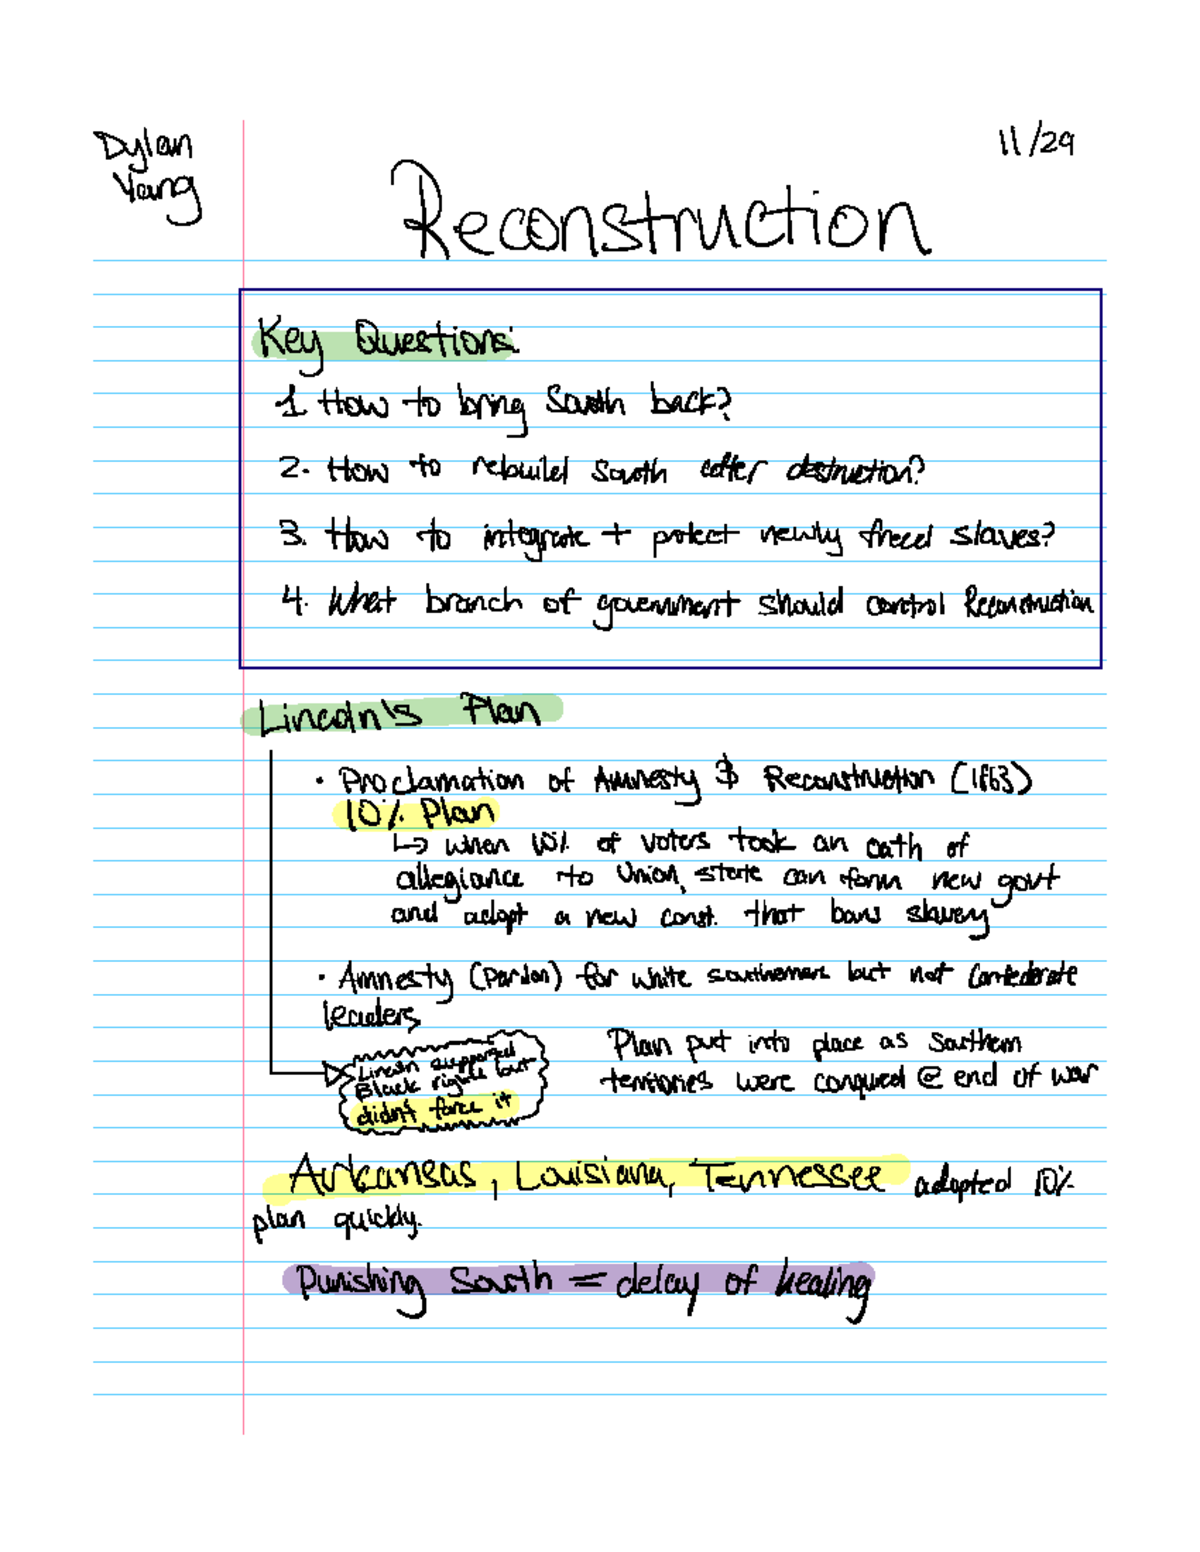 Dylan
Yang
11/29
Reconstruction
Key Questions:
1 How to bring South back?
2. How to rebuild South after destruction?
3. How to integrate + protect newly freed slaves?
4. What branch of government should control Reconstruction
Lincoln's Plan
• Proclamation of Amnesty & Reconstruction (1863)
10% Plan
↳ when 10% of voters took an oath of
allegiance to Union, state can form new govt
and adopt a new const. that bans slavery
• Amnesty (Pardon) for white southerners but not Confederate
leaders
Lincoln supported
Black rights but
didn't force it
Plan put into place as Southern
territories were conquered @ end of war
Arkansas, Louisiana, Tennessee adopted 10%
plan quickly.
Punishing South = delay of healing